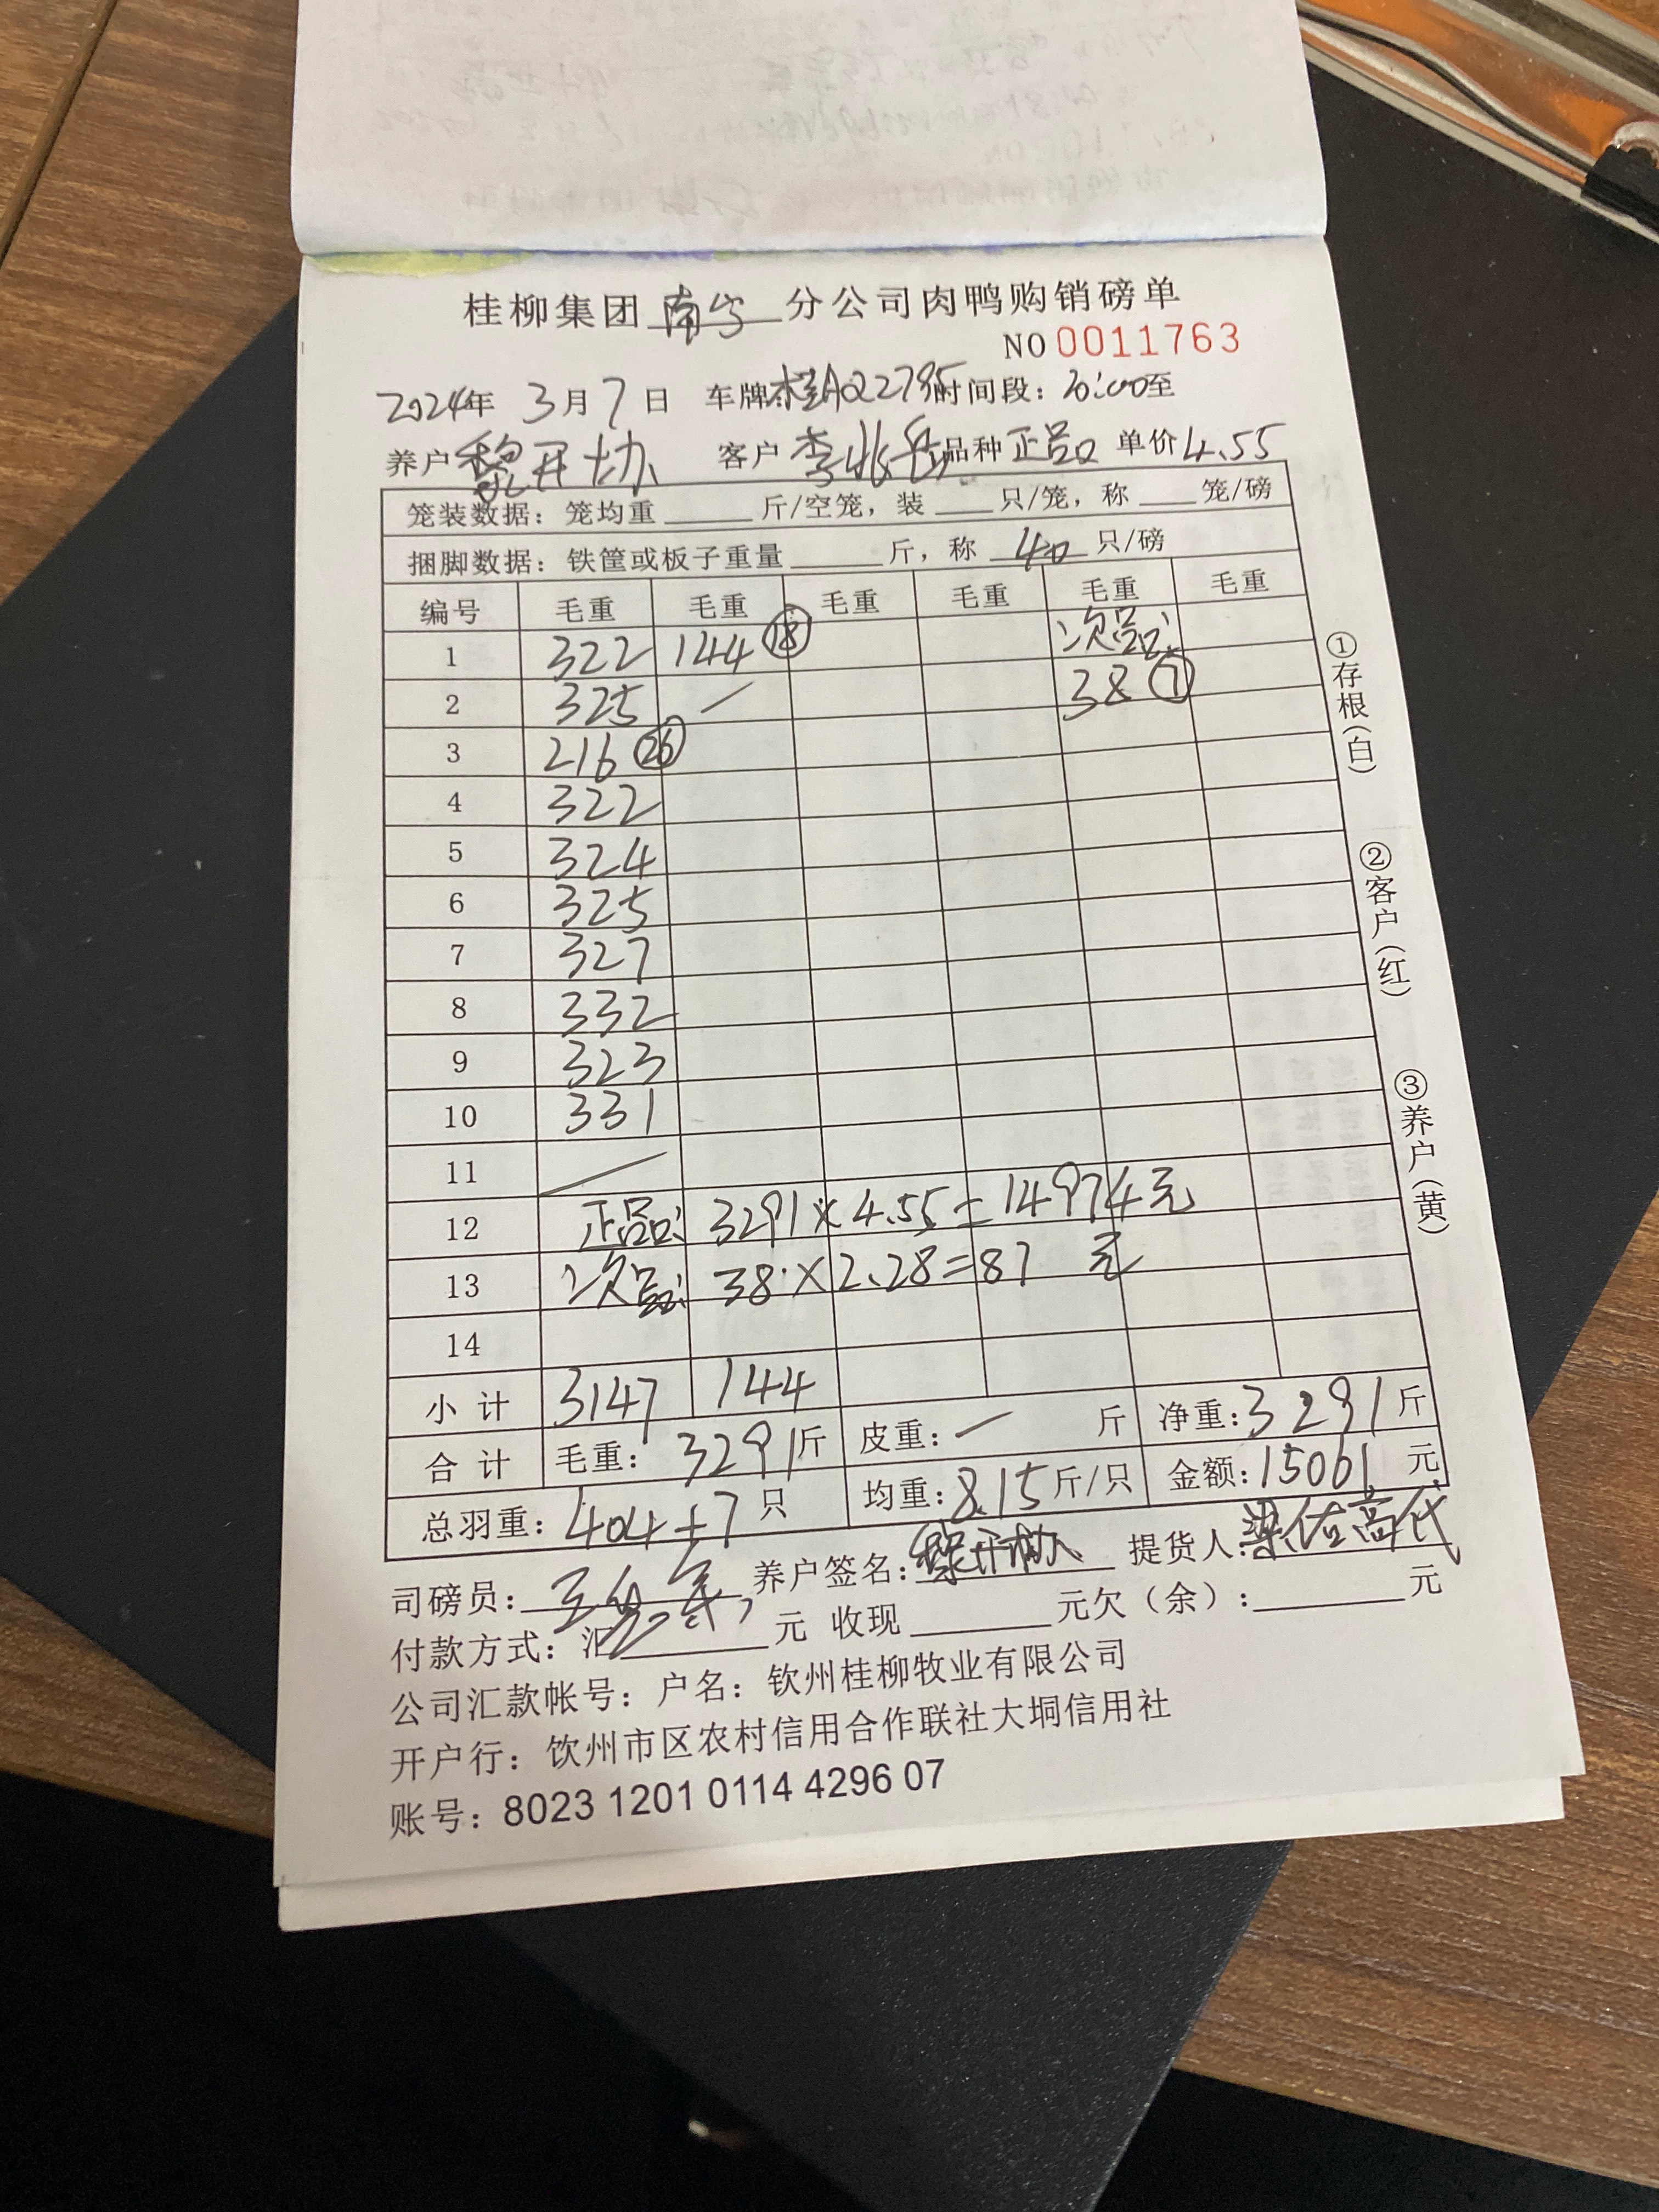 桂柳集团南宁分公司肉鸭购销磅单
NO 0011763
2024年 3月7日 车牌:桂AQ2795时间段：20:00至
养户黎开协 客户李兆岳品种正品 单价4.55
笼装数据：笼均重____斤/空笼，装____只/笼，称____笼/磅
捆脚数据：铁筐或板子重量____斤，称 40 只/磅
编号 毛重 毛重 毛重 毛重 毛重 毛重
1 322 144 ⑱ 次品:
2 325 / 38 ⑦
3 216 ㉖
4 322
5 324
6 325
7 327
8 332
9 323
10 331
11 /
12 正品: 3291×4.55=14974元
13 次品: 38×2.28=87 元
14
小计 3147 144
合计 毛重：3291斤 皮重：— 斤 净重:3291斤
总羽重：404+7 只 均重:8.15斤/只 金额:15061 元
司磅员: 养户签名:黎开协 提货人:梁佑高代
付款方式：汇____元 收现____元欠（余）:____元
公司汇款帐号：户名：钦州桂柳牧业有限公司
开户行：饮州市区农村信用合作联社大垌信用社
账号：8023 1201 0114 4296 07
①存根(白)
②客户(红)
③养户(黄)